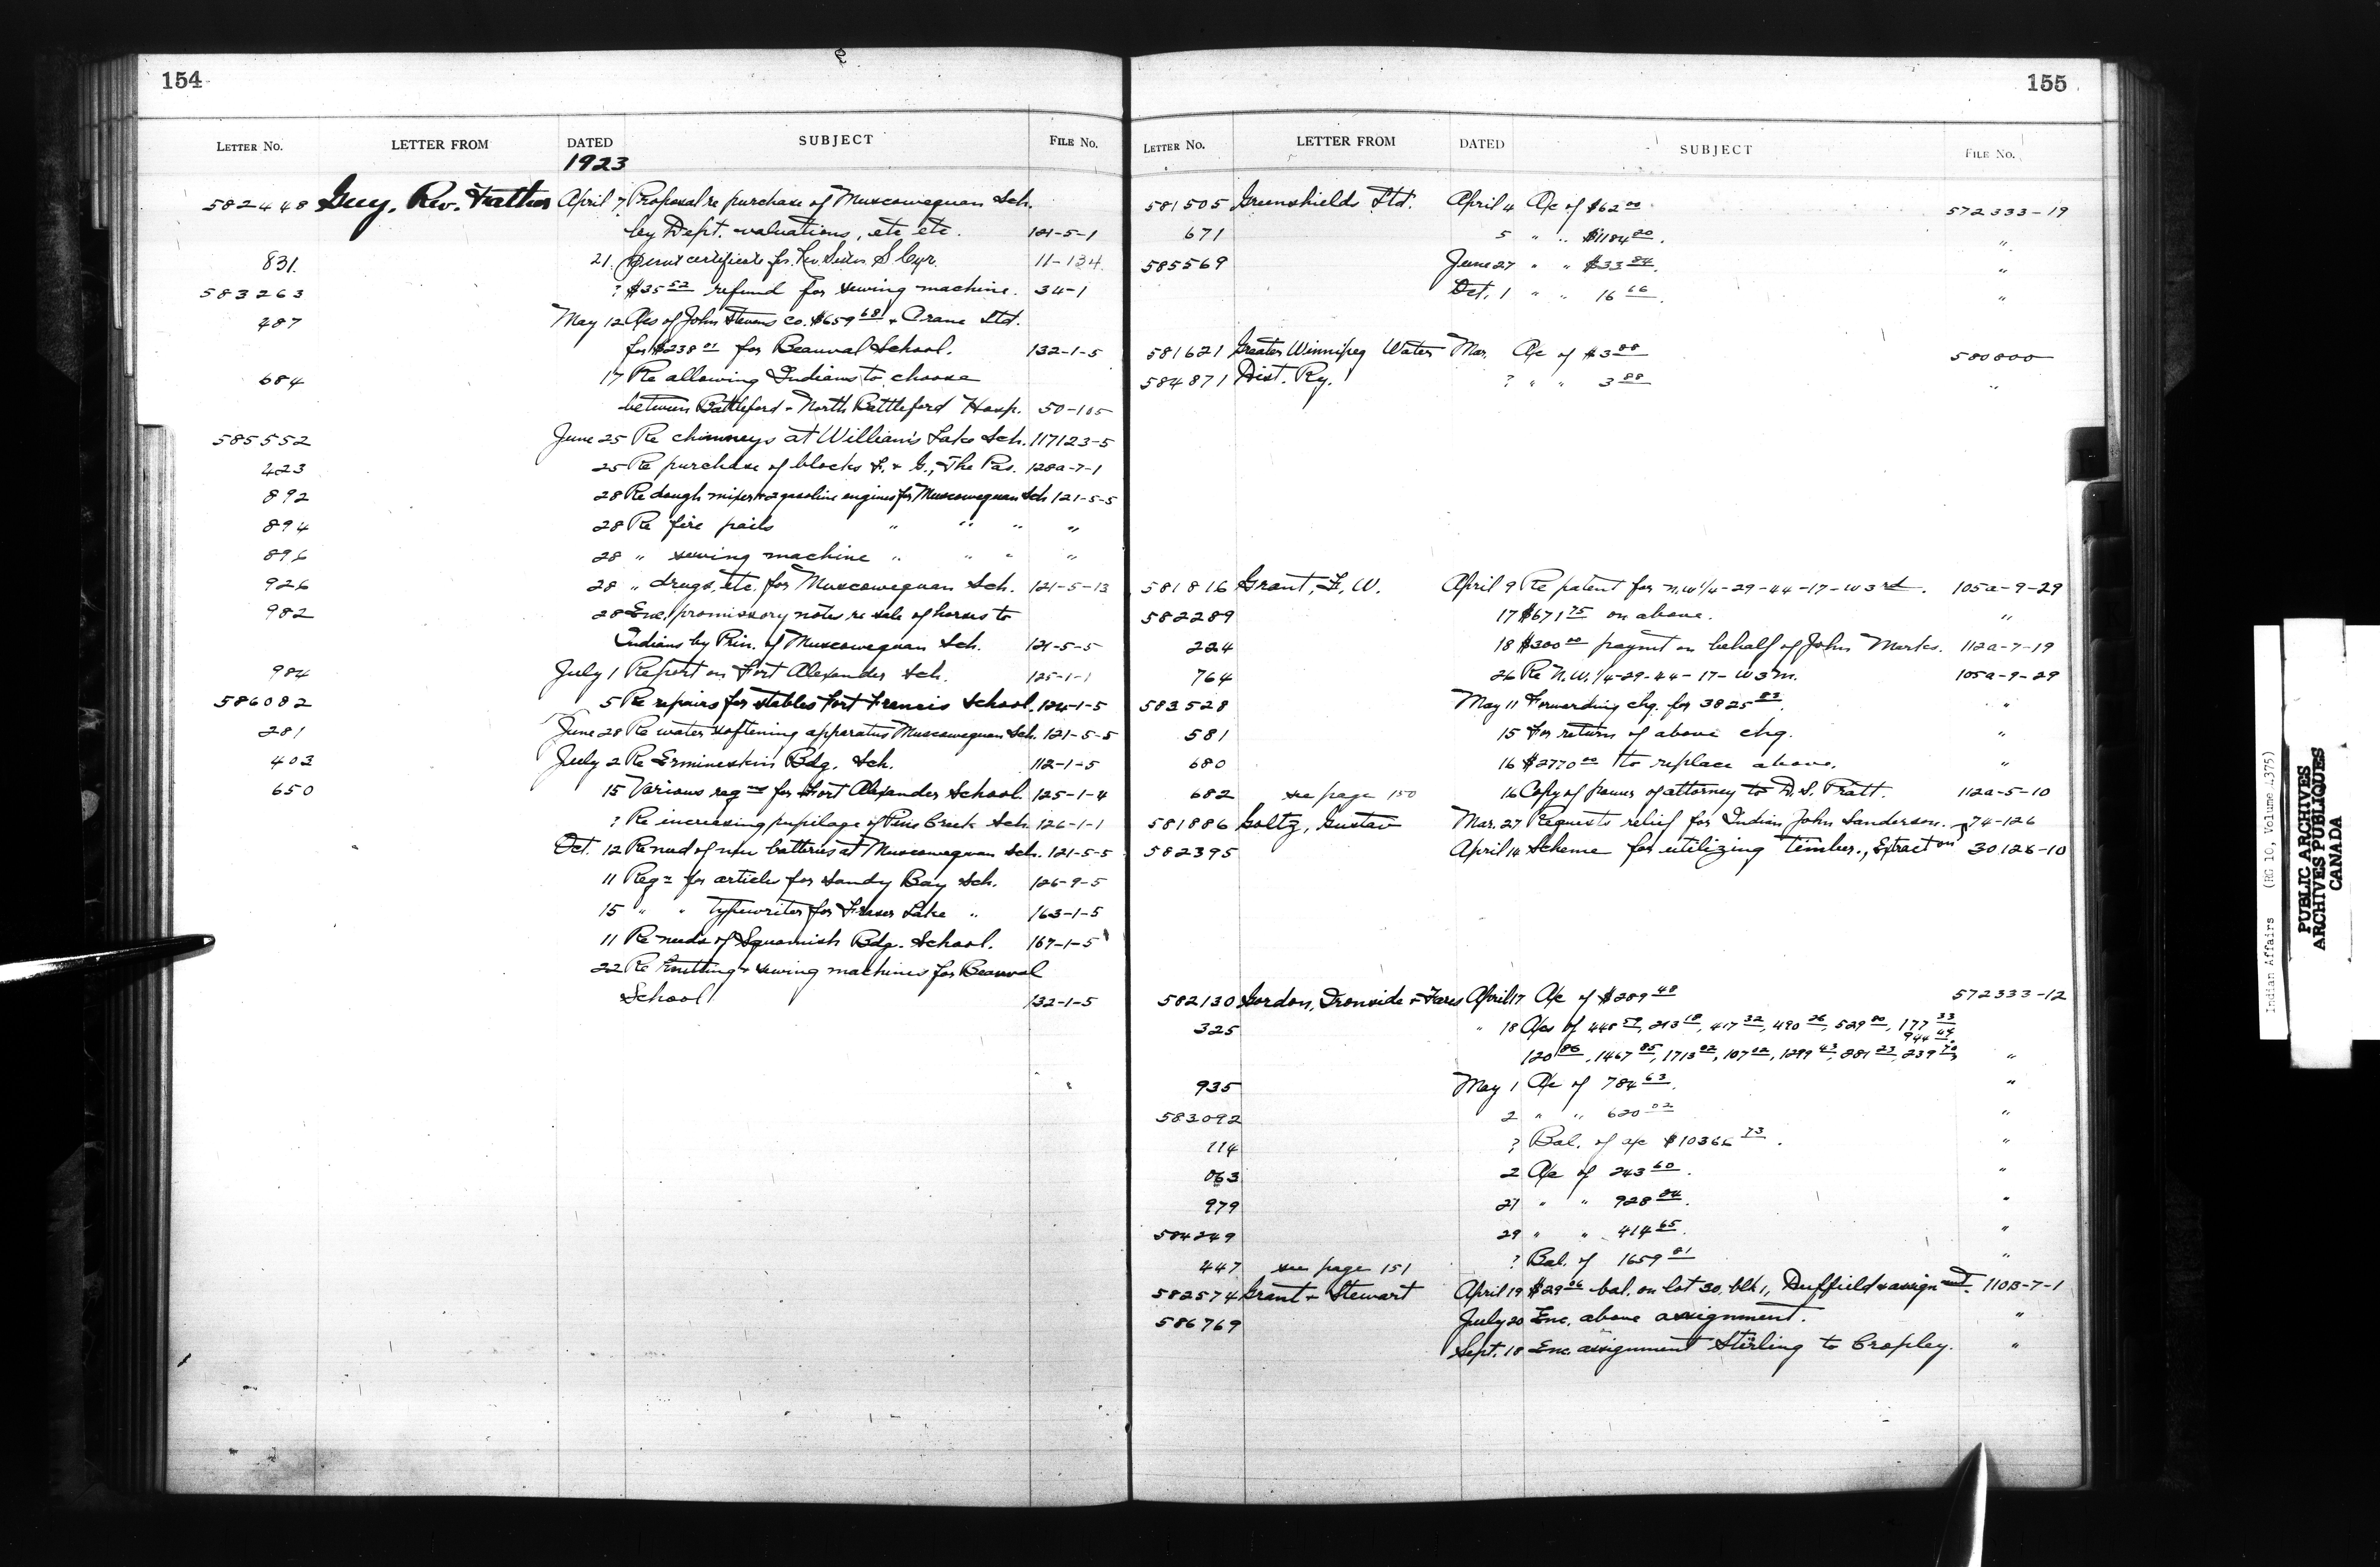 154
LETTER No. LETTER FROM DATED SUBJECT FILE No.
1923
582448 Guy, Rev. Father April 7 Proposal re purchase of Muscowequan Sch.
by Dept. valuations, etc etc. 121-5-1
831. 21. certificate for Rev. Sister S. Cyr. 11-134
583263 ? $35 52 refund for sewing machine. 34-1
487 May 12 A/cs of John Stevens Co. $659 68 + Crane Ltd.
for $238 01 for Beauval School. 132-1-5
684 17 Re allowing Indians to choose
between Battleford + North Battleford Hosp. 50-105
585552 June 25 Re chimneys at William's Lake Sch. 117123-5
423 25 Re purchase of blocks F. + G., The Pas. 128a-7-1
892 28 Re dough mixer + 2 gasoline engines for Muscowequan Sch 121-5-5
894 28 Re fire pails " " " "
896 28 " sewing machine " " " "
926 28 " drugs, etc. for Muscowequan Sch. 121-5-13
982 28 Enc. promissory notes re sale of horses to
Indians by Prin. of Muscowequan Sch. 121-5-5
984 July 1 Report on Fort Alexander Sch. 125-1-1
586082 5 Re repairs for stables Fort Francis School. 124-1-5
281 June 28 Re water softening apparatus Muscowequan Sch. 121-5-5
403 July 2 Re Ermineskin Bdg. Sch. 112-1-5
650 15 Various reqns for Fort Alexander School. 125-1-4
? Re increasing pupilage of Pine Creek Sch. 126-1-1
Oct. 12 Re need of new batteries at Muscowequan Sch. 121-5-5
11 Reqn for articles for Sandy Bay Sch. 126-9-5
15 " " typewriter for Fraser Lake " 163-1-5
11 Re needs of Squamish Bdg. School. 167-1-5
22 Re knitting + sewing machines for Beauval
School 132-1-5
155
LETTER No. LETTER FROM DATED SUBJECT FILE No.
581505 Greenshields Ltd. April 4 A/c of $62 00 572333-19
671 5 " " $1184 20. "
585569 June 27 " " $33 84. "
Oct. 1 " " 16 66. "
581621 Greater Winnipeg Water Mar. A/c of $3 88 580800
584871 Dist. Ry. ? " " 3 88 "
581816 Grant, F. W. April 9 Re patent for N.W 1/4-29-44-17-W3rd. 105a-9-29
582289 17 $671 75 on above. "
224 18 $300 00 paymt on behalf of John Marks. 112a-7-19
764 26 Re N.W. 1/4-29-44-17-W3m. 105a-9-29
583528 May 11 Forwarding chq. for 3825 83. "
581 15 For return of above chq. "
680 16 $2770 00 to replace above. "
682 see page 150 16 Copy of power of attorney to D. S. Pratt. 112a-5-10
581886 Goltz, Gustav Mar. 27 Requests relief for Indian John Sanderson. 74-126
582395 April 14 Scheme for utilizing timber., Extract on 30126-10
582130 Gordon, Ironside + Fares April 17 A/c of $289 48 572333-12
325 " 18 A/cs of 445 59, 213 18, 417 32, 490 26, 529 80, 177 33
944 44.
120 86, 1467 85, 1713 02, 107 02, 1299 43, 881 23, 239 70 "
935 May 1 A/c of 784 63. "
583092 2 " " 620 02 "
114 ? Bal. of a/c $10366 73. "
063 2 A/c of 243 60. "
979 21 " " 928 84. "
584249 29 " " 414 65. "
447 see page 151 ? Bal. of 1659 81 "
582574 Grant + Stewart April 19 $29 06 bal. on lot 30, blk 1, Duffield + assignmt. 110B-7-1
586769 July 20 Enc. above assignment. "
Sept. 18 Enc. assignment Stirling to Cropley. "
Indian Affairs (RG 10, Volume 4375)
PUBLIC ARCHIVES
ARCHIVES PUBLIQUES
CANADA